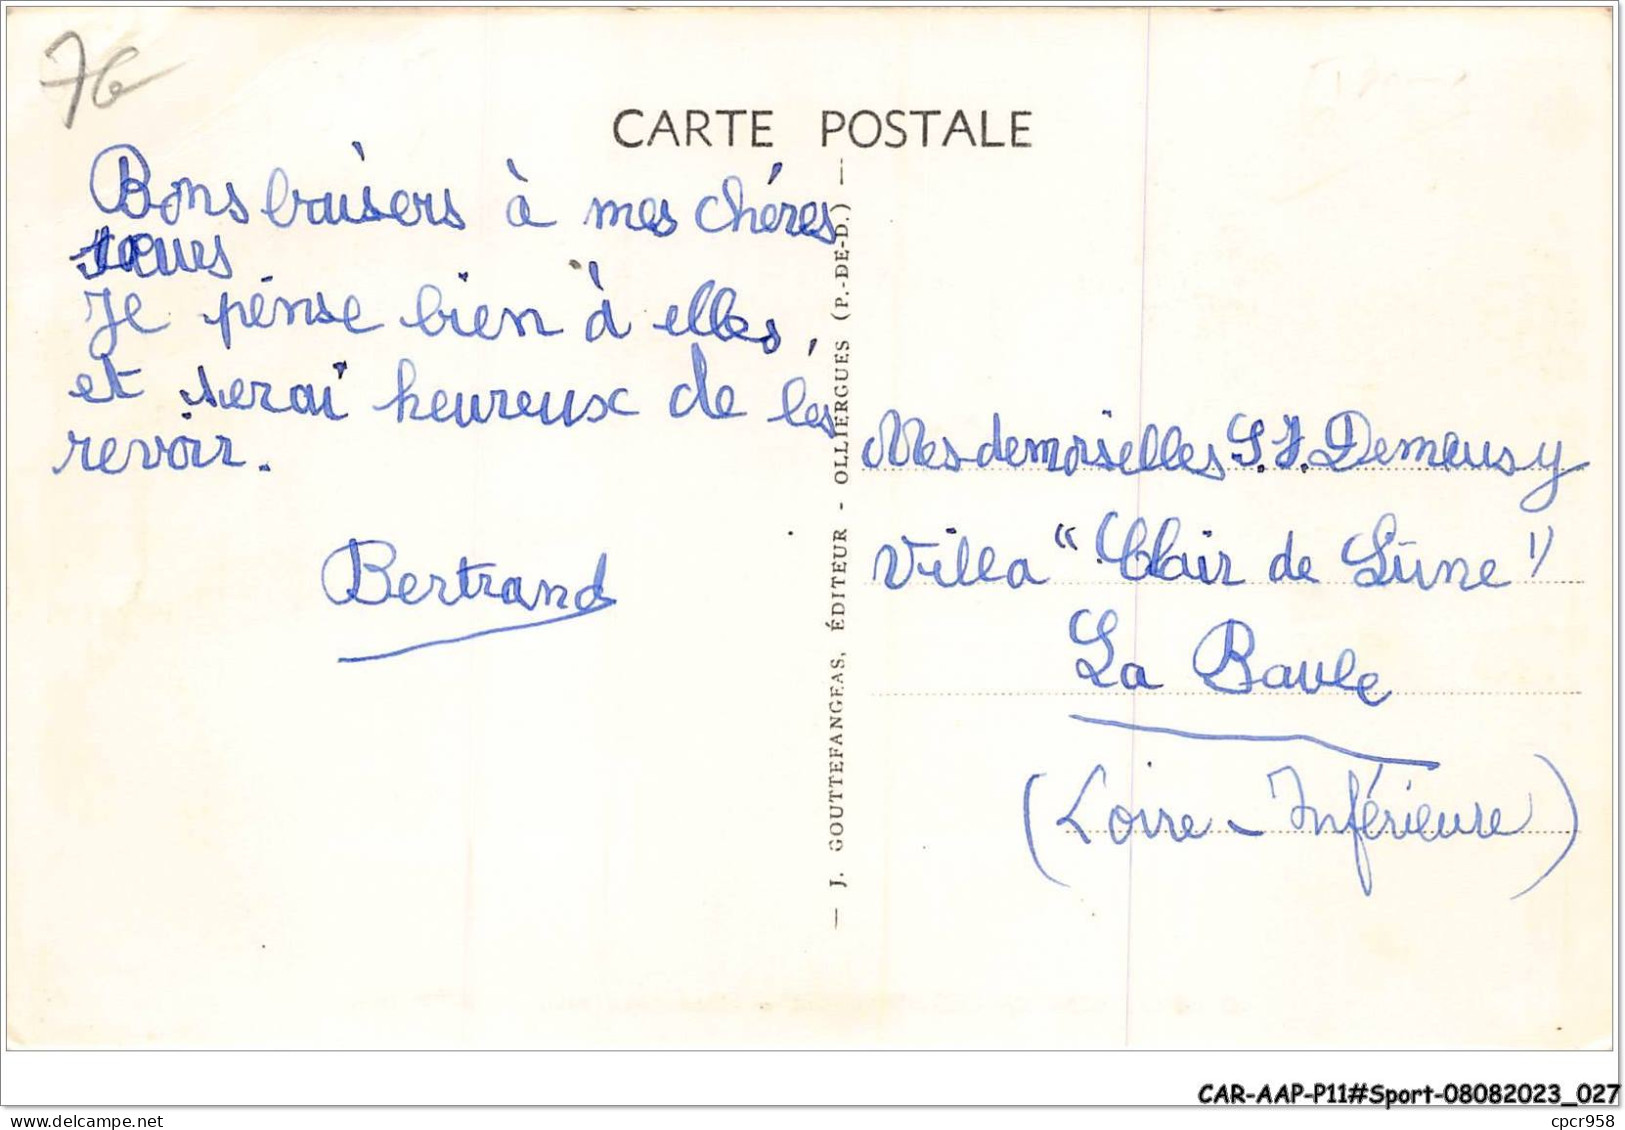 76
CARTE POSTALE
Bons baisers à mes chéres
sœurs
Je pénse bien à elles,
et serai heureux de les
revoir.
Bertrand
— J. GOUTTEFANGEAS, ÉDITEUR - OLLIERGUES (P.-DE-D.) —
Mesdemoiselles S.J. Demeusy
Villa "Clair de Lune"
La Baule
(Loire-Inférieure)
CAR-AAP-P11#Sport-08082023_027
cpcr958